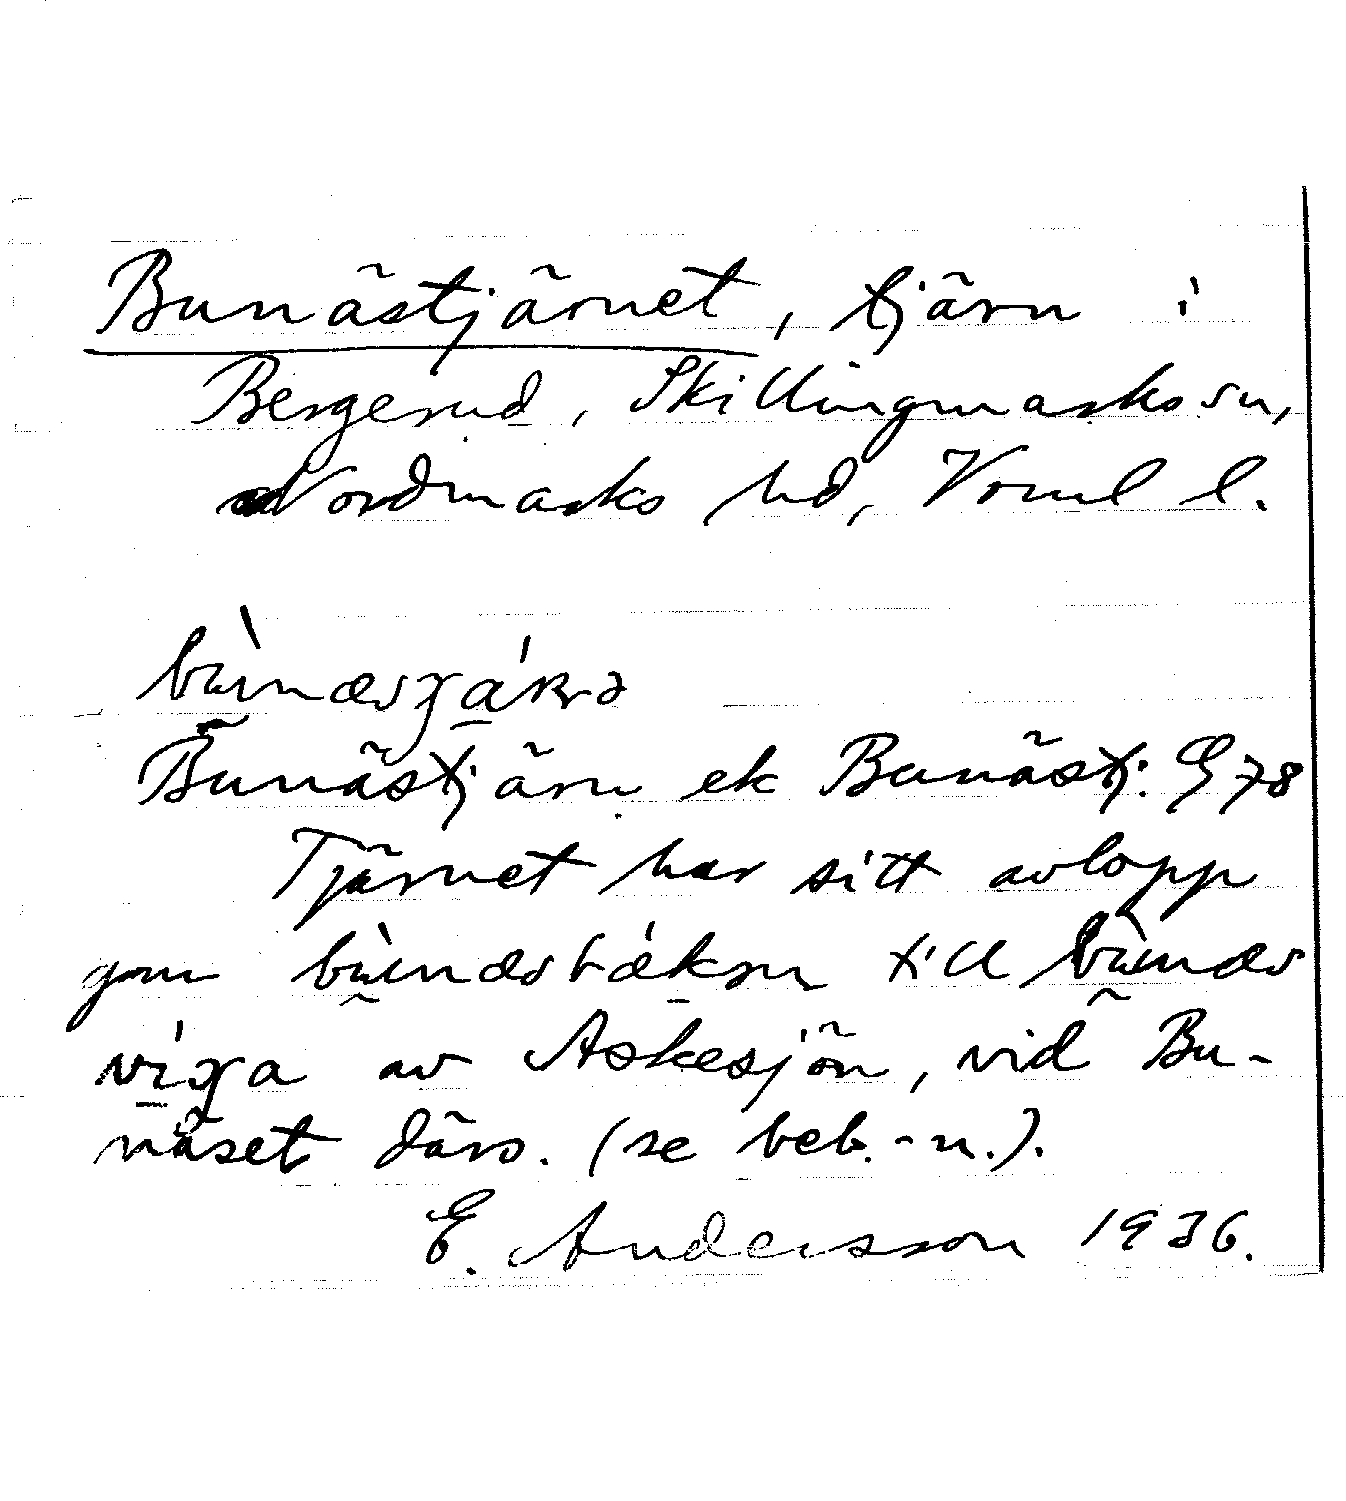 Bunästjärnet, tjärn i
Bergerud, Skillingmarks sn,
Nordmarks hd, Verml l.
Bunästjärn ek Bunästj: G 78
Tjärnet har sitt avlopp
gnm till
av Askesjön, vid Bu-
näset därs. (se beb.-n.).
E. Andersson 1936.